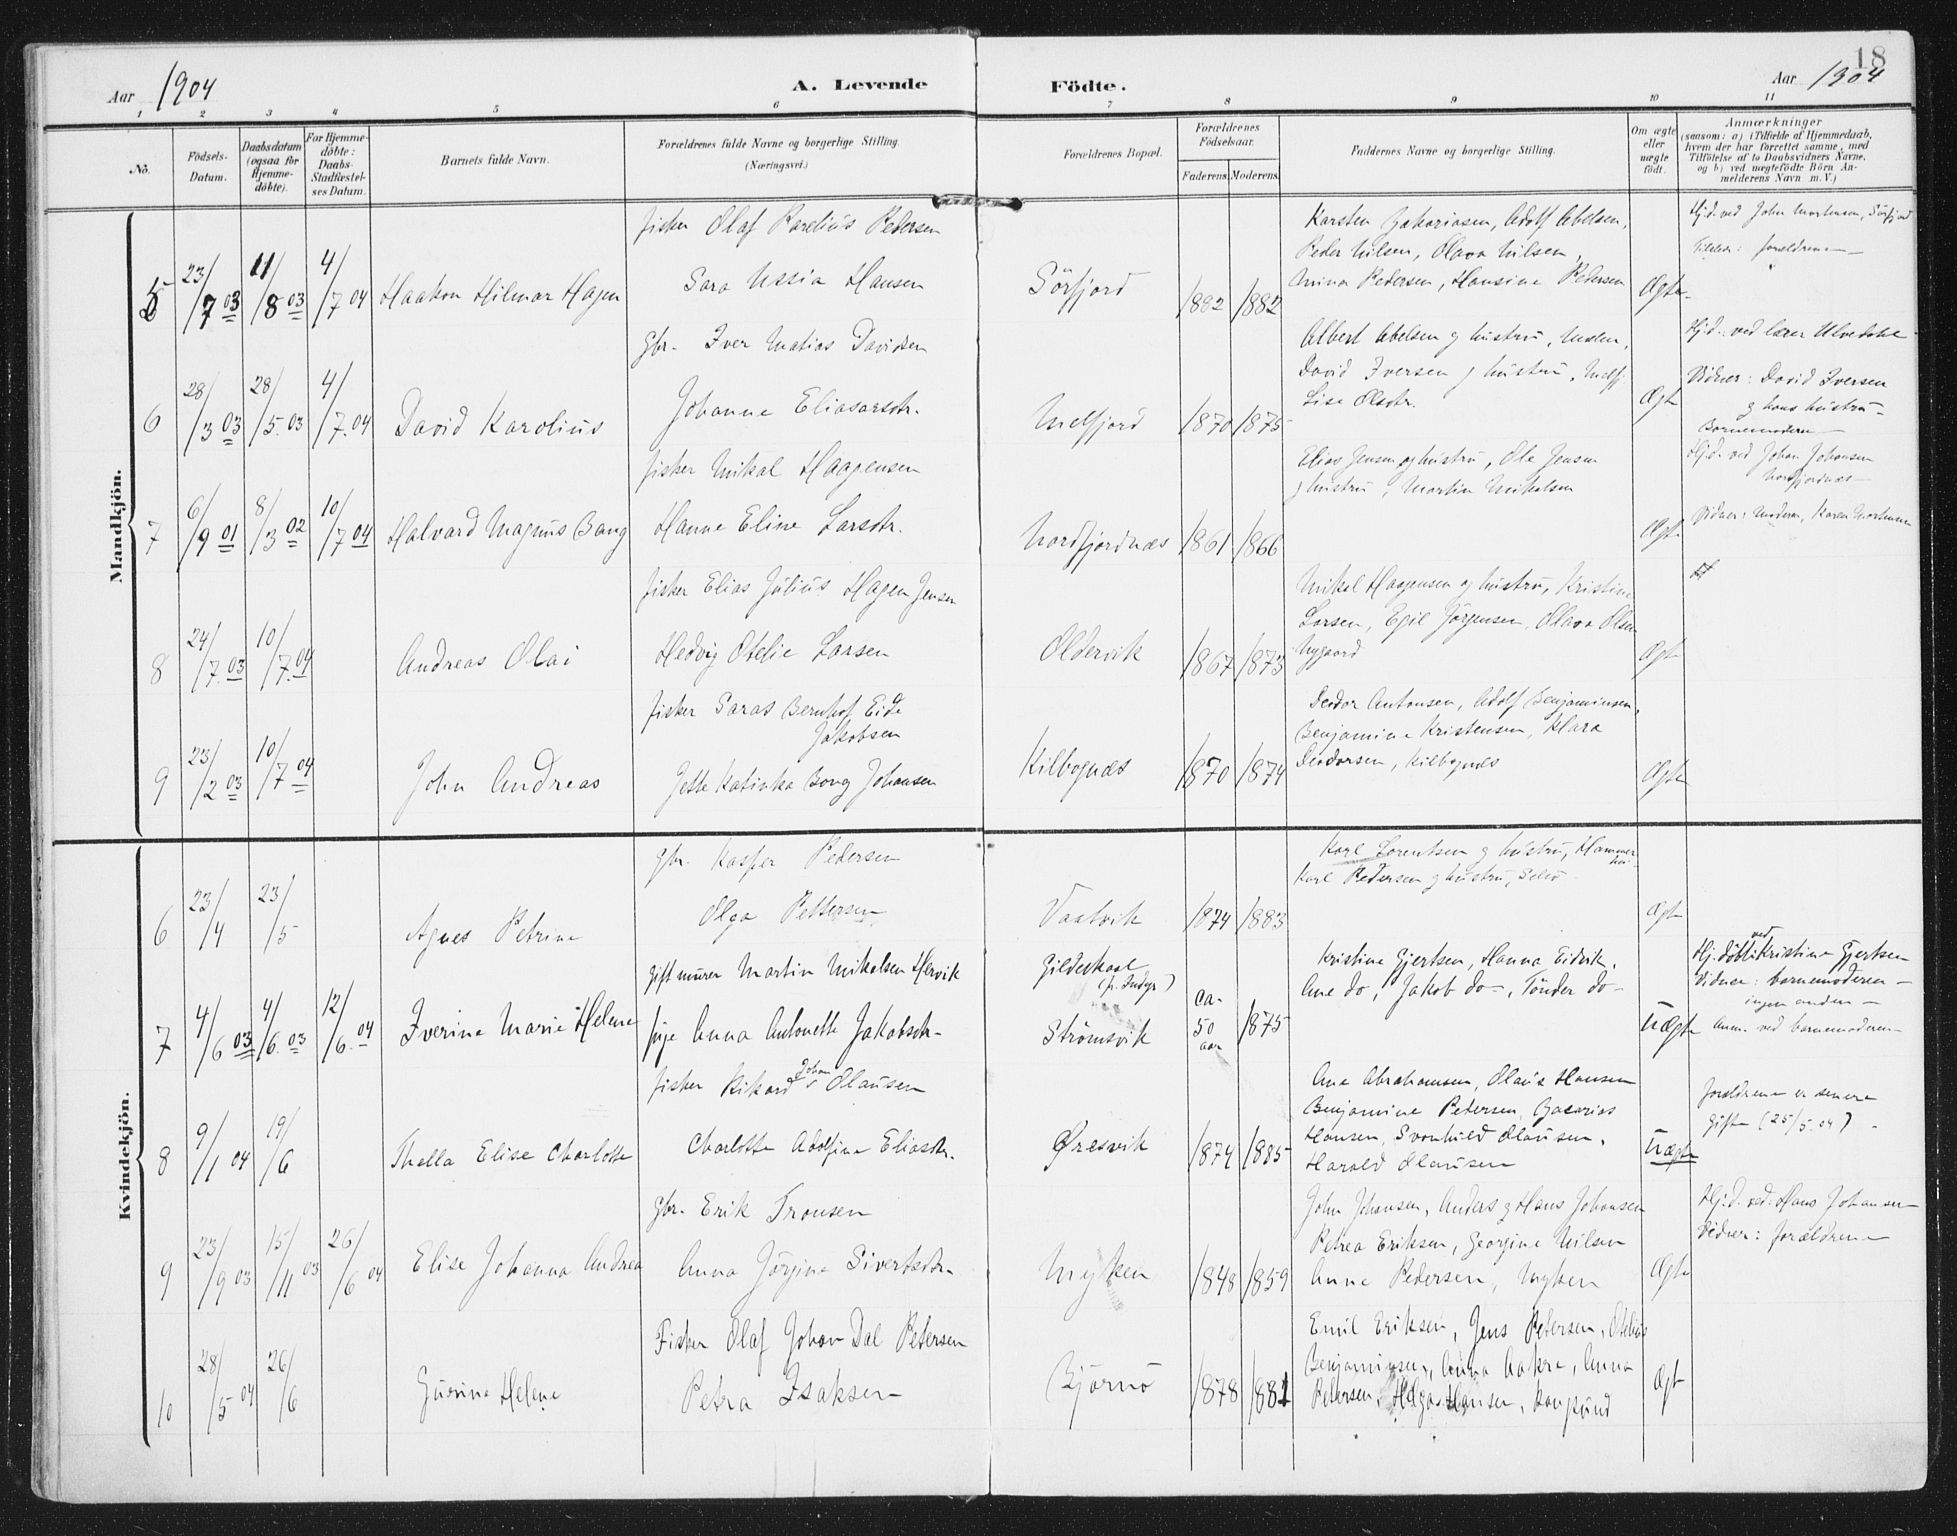 18
Aar 1904 A. Levende Födte. Aar 1904
1 2 3 4 5 6 7 8 9 10 11
No.
Födsels-Datum.
Daabsdatum (ogsaa for Hjemme-döbte).
For Hjemme-döbte: Daabs-Stadfæstel-ses Datum.
Barnets fulde Navn.
Forældrenes fulde Navne og borgerlige Stilling. (Næringsvei.)
Forældrenes Bopæl.
Forældrenes Födselsaar.
Faderens. Moderens.
Faddernes Navne og borgerlige Stilling.
Om ægte eller uægte födt.
Anmærkninger
(saasom: a) i Tilfælde af Hjemmedaab,
hvem der har forrettet samme, med
Tilföielse af to Daabsvidners Navne,
og b) ved uægtefödte Börn An-
melderens Navn m. V.)
Mandkjön.
5 23/7 03 11/8 03 4/7 04 Haakon Hilmar Hagen
fisker Olaf Karelius Pedersen
Sara Hansen
Sörfjord 1882 1882
Karsten Zakariasen, Adolf Abelsen,
Peder Nilsen, Olava Nilsen,
Pedersen, Hansine Pedersen
Ægte
Hj.d. ved John Mortensen, Sörfjord
forældrene
6 28/3 03 28/5 03 4/7 04 David Karolius
gbr. Iver Matias Davidsen
Johanne Eliasarsdtr.
Melfjord 1870 1875
Albert Abelsen og hustru,
David Iversen og hustru, Melfj.
Lise Olsdtr.
Ægte
Hj.d. ved lærer
Vidner: David Iversen
og hans hustru
Barnemoderen
7 6/9 01 8/3 02 10/7 04 Halvard Magnus Bang
fisker Mikal Haagensen
Hanne Eline Larsdtr.
Nordfjordnæs 1861 1866
Elias Jensen og hustru, Ole Jensen
og hustru, Martin Mikalsen
Ægte
Hj.d. ved Johan Johansen
Nordfjordnæs
Vidner: Moderen, Karen Mortensen
8 24/7 03 10/7 04 Andreas Olai
fisker Elias Julius Hagen Jensen
Hedvig Otelie Larsen
Oldervik 1867 1873
Mikal Haagensen og hustru, Kristine
Larsen, Egil Jörgensen, Olava Olsen
Nygaard
Ægte
9 23/2 03 10/7 04 John Andreas
fisker Saras Bernhof Eide
Jakobsen
Jette Katinka Bang Johansen
Kilbognæs 1870 1874
Deodor Antonsen, Adolf Benjaminsen,
Benjamine Kristensen, Klara
Deodorsen, Kilbognæs
Ægte
Kvindekjön.
6 23/4 23/5 Agnes Petrine
gbr. Kasper Pedersen
Olga Pettersen
Vaatvik 1874 1883
Karl Lorentsen og hustru,
Karl Pedersen og hustru, Selsö
Ægte
7 4/6 03 4/6 03 12/6 04 Iverine Marie Helene
Gift murer Martin Mikalsen Hervik
pige Anna Antonette Jakobsdtr.
Gildeskaal
(pr. Indyr)
Strömsvik ca. 50 aar 1875
Kristine Gjertsen, Hanna Eidvik,
Ane do, Jakob do, Tönder do
Uægte
Hj.döbt ved Kristine Gjertsen
Vidner: barnemoderen
ingen anden
Anm. ved barnemoderen
8 9/1 04 19/6 Thella Elise Charlotte
fisker Rikard Johan Olausen
Charlotte Adolfine Eliasdtr.
Øresvik 1874 1885
Ane Abrahamsen, Olaus Hansen
Benjamine Pedersen, Zacarias
Hansen, Svanhild Olausen,
Harald Olausen
Uægte
forældrene er senere
gifte (25/5 04)
9 23/9 03 15/11 03 26/6 04 Elise Johanna Andrea
gbr. Erik Tronsen
Anna Jörgine Sivertsdtr.
Myken 1848 1859
John Johansen, Anders og Hans Johansen
Petrea Eriksen, Georgine Nilsen
Anne Pedersen, Myken
Ægte
Hj.d. ved: Hans Johansen
Vidner: forældrene
10 28/5 04 26/6 Gurine Helene
Fisker Olaf Johan Dal Petersen
Petra Isaksen
Björnö 1878 1881
Emil Eriksen, Jens Petersen, Otelius
Benjaminsen, Anna Aakre, Anna
Petersen, Helga Hansen, Rangsund
Ægt